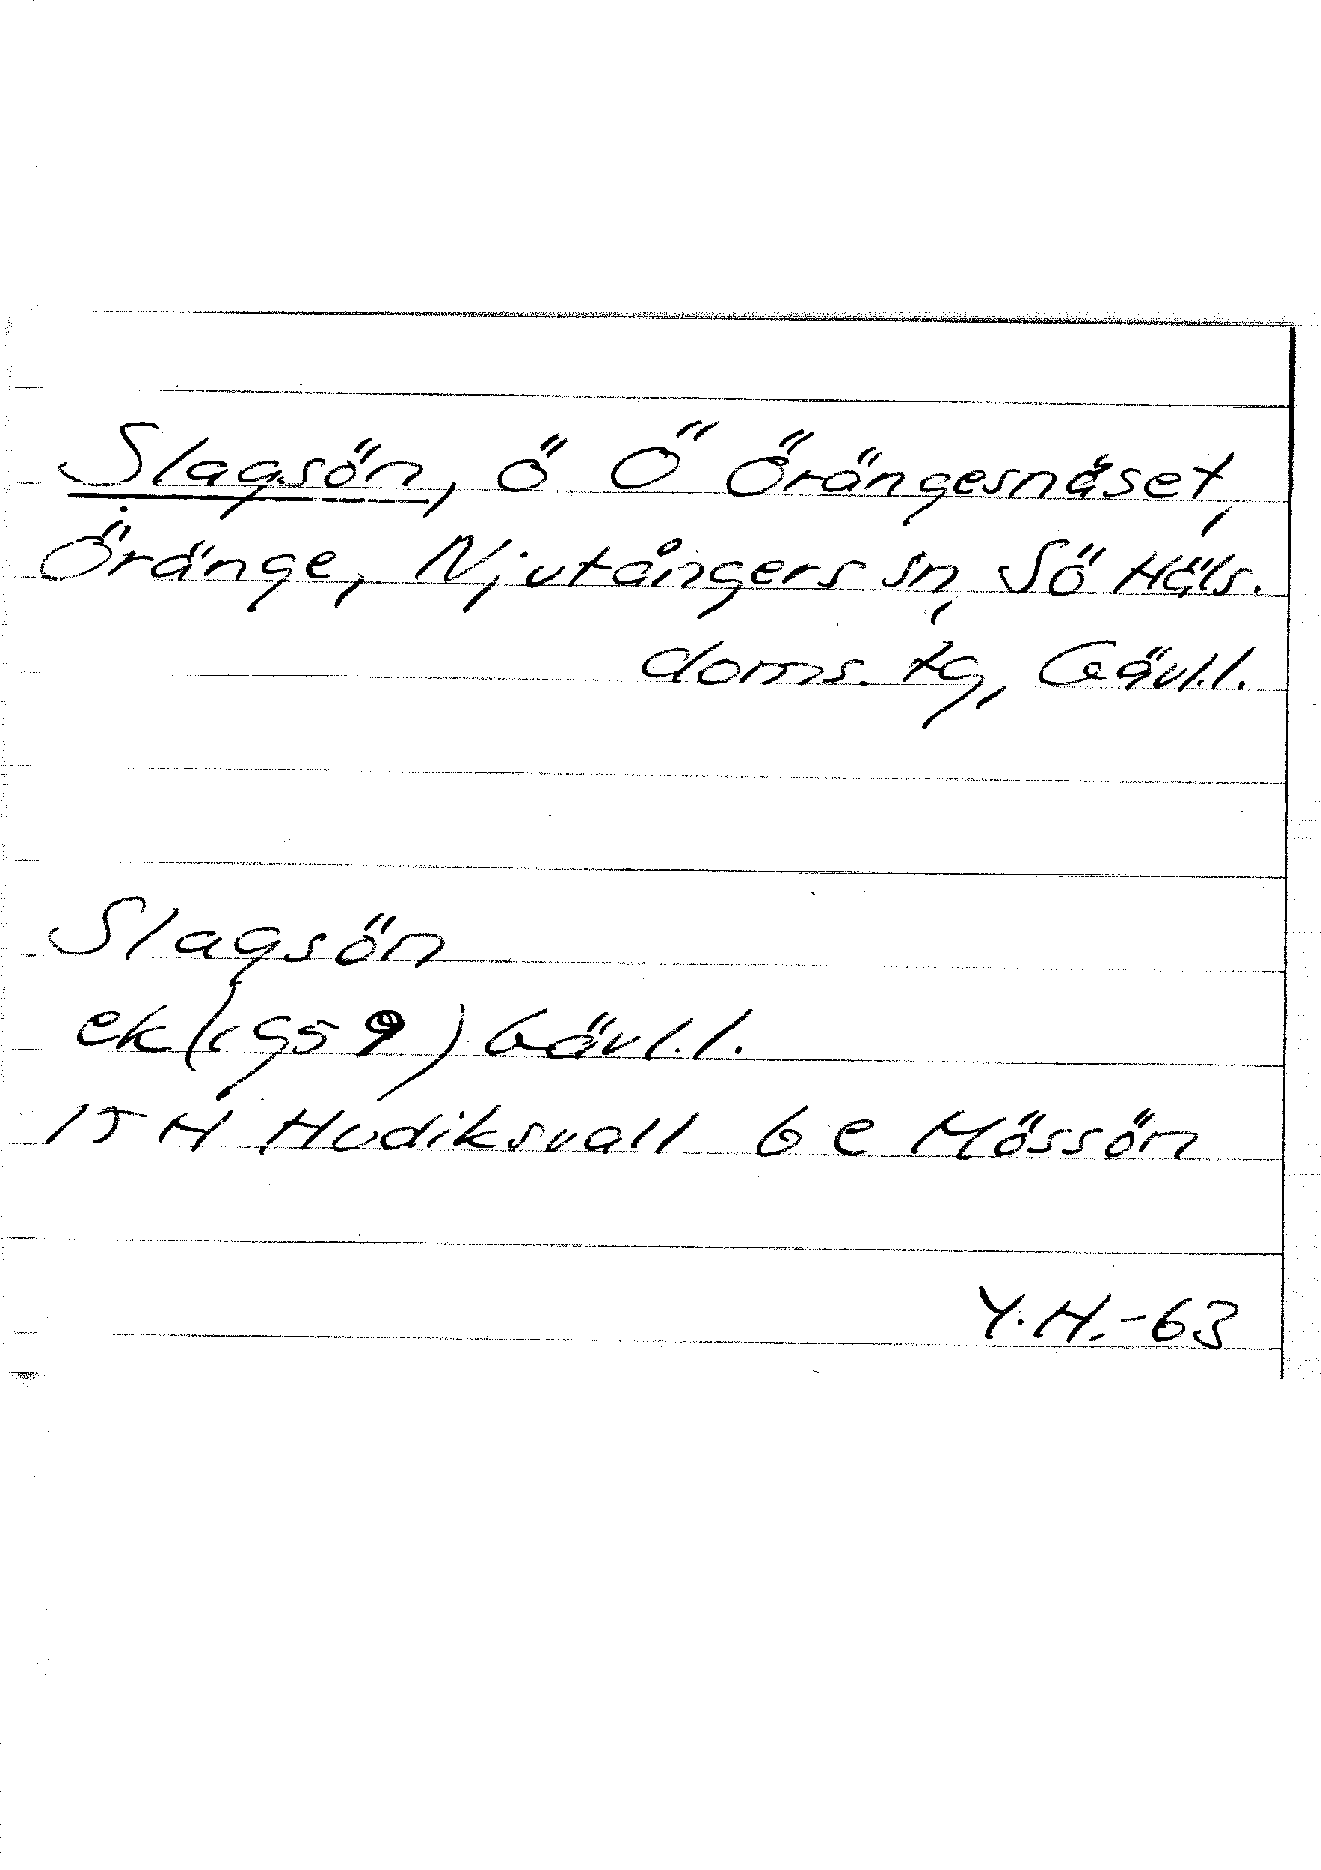 Slagsön, ö Ö Örängesnäset,
Öränge, Njutångers sn, Sö Häls.
doms. tg, Gävl.l.
Slagsön
ek (1959) Gävl.l.
15 H Hudiksvall 6 e Mössön
Y.H.-63